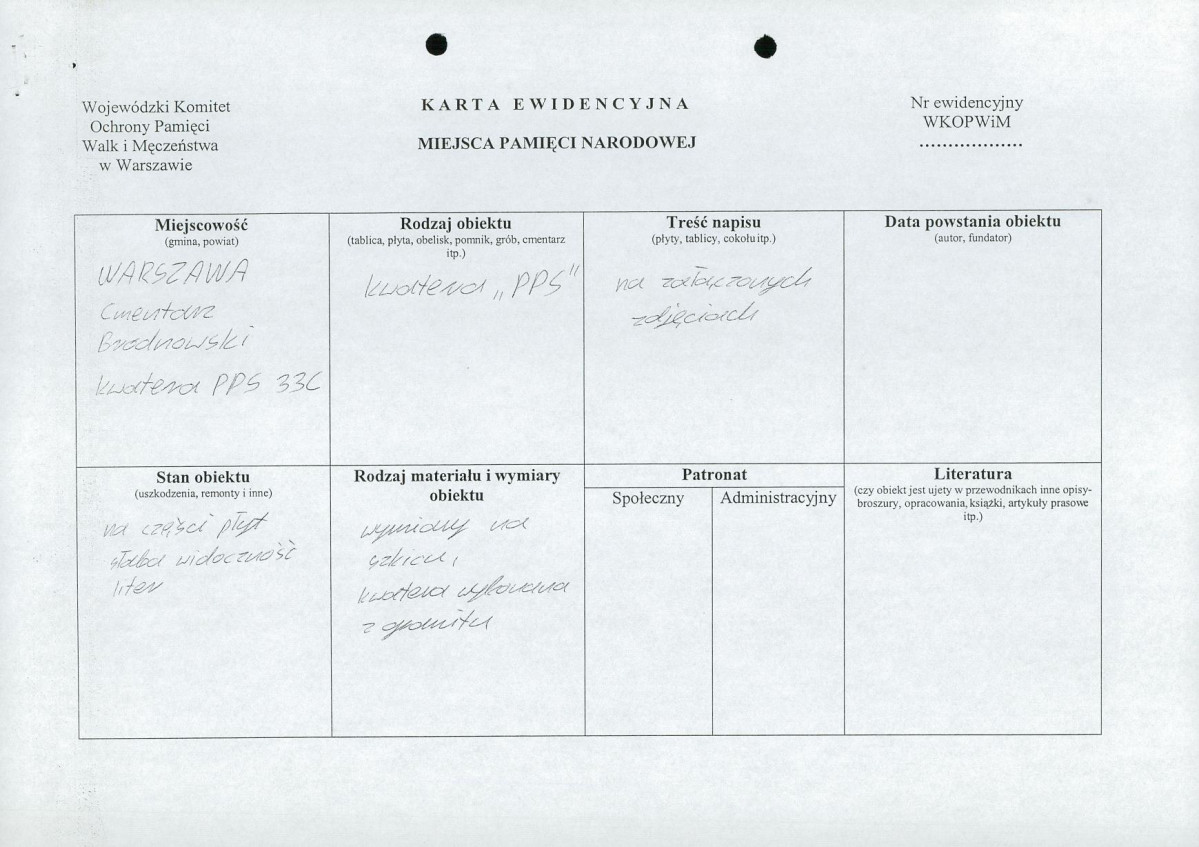 Wojewódzki Komitet
Ochrony Pamięci
Walk i Męczeństwa
w Warszawie
KARTA EWIDENCYJNA
MIEJSCA PAMIĘCI NARODOWEJ
Nr ewidencyjny
WKOPWiM
..................
Miejscowość
(gmina, powiat)
WARSZAWA
Cmentarz
Brodnowski
kwatera PPS 33C
Rodzaj obiektu
(tablica, płyta, obelisk, pomnik, grób, cmentarz
itp.)
kwatera „PPS"
Treść napisu
(płyty, tablicy, cokołu itp.)
na załączonych
zdjęciach
Data powstania obiektu
(autor, fundator)
Stan obiektu
(uszkodzenia, remonty i inne)
na części płyt
słaba widoczność
liter
Rodzaj materiału i wymiary
obiektu
wymiary na
szkicu,
kwatera wykonana
z granitu
Patronat
Społeczny
Administracyjny
Literatura
(czy obiekt jest ujety w przewodnikach inne opisy-
broszury, opracowania, książki, artykuły prasowe
itp.)